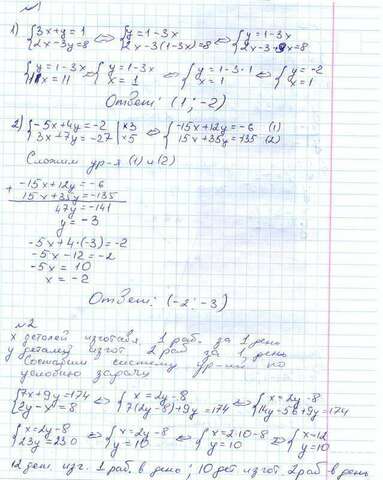 №1
1) {3x+y=1 {2x-3y=8 ⇔ {y=1-3x {2x-3(1-3x)=8 ⇔ {y=1-3x {2x-3+9x=8
{y=1-3x {11x=11 ⇔ {y=1-3x {x=1 ⇔ {y=1-3·1 {x=1 ⇔ {y=-2 {x=1
Ответ: (1; -2)
2) {-5x+4y=-2 |×3 {3x+7y=-27 |×5 ⇔ {-15x+12y=-6 (1) {15x+35y=-135 (2)
Сложим ур-я (1) и (2)
+ -15x+12y=-6
15x+35y=-135
47y=-141
y=-3
-5x+4·(-3)=-2
-5x-12=-2
-5x=10
x=-2
Ответ: (-2; -3)
№2
x деталей изготавл 1 раб. за 1 день
y деталей изгот 2 раб за 1 день
Составим систему ур-ий по
условию задачи
{7x+9y=174 {2y-x=8 ⇔ {x=2y-8 {7(2y-8)+9y=174 ⇔ {x=2y-8 {14y-56+9y=174
{x=2y-8 {23y=230 ⇔ {x=2y-8 {y=10 ⇔ {x=2·10-8 {y=10 ⇔ {x=12 {y=10
12 дет. изг. 1 раб. в день; 10 дет изгот. 2 раб в день